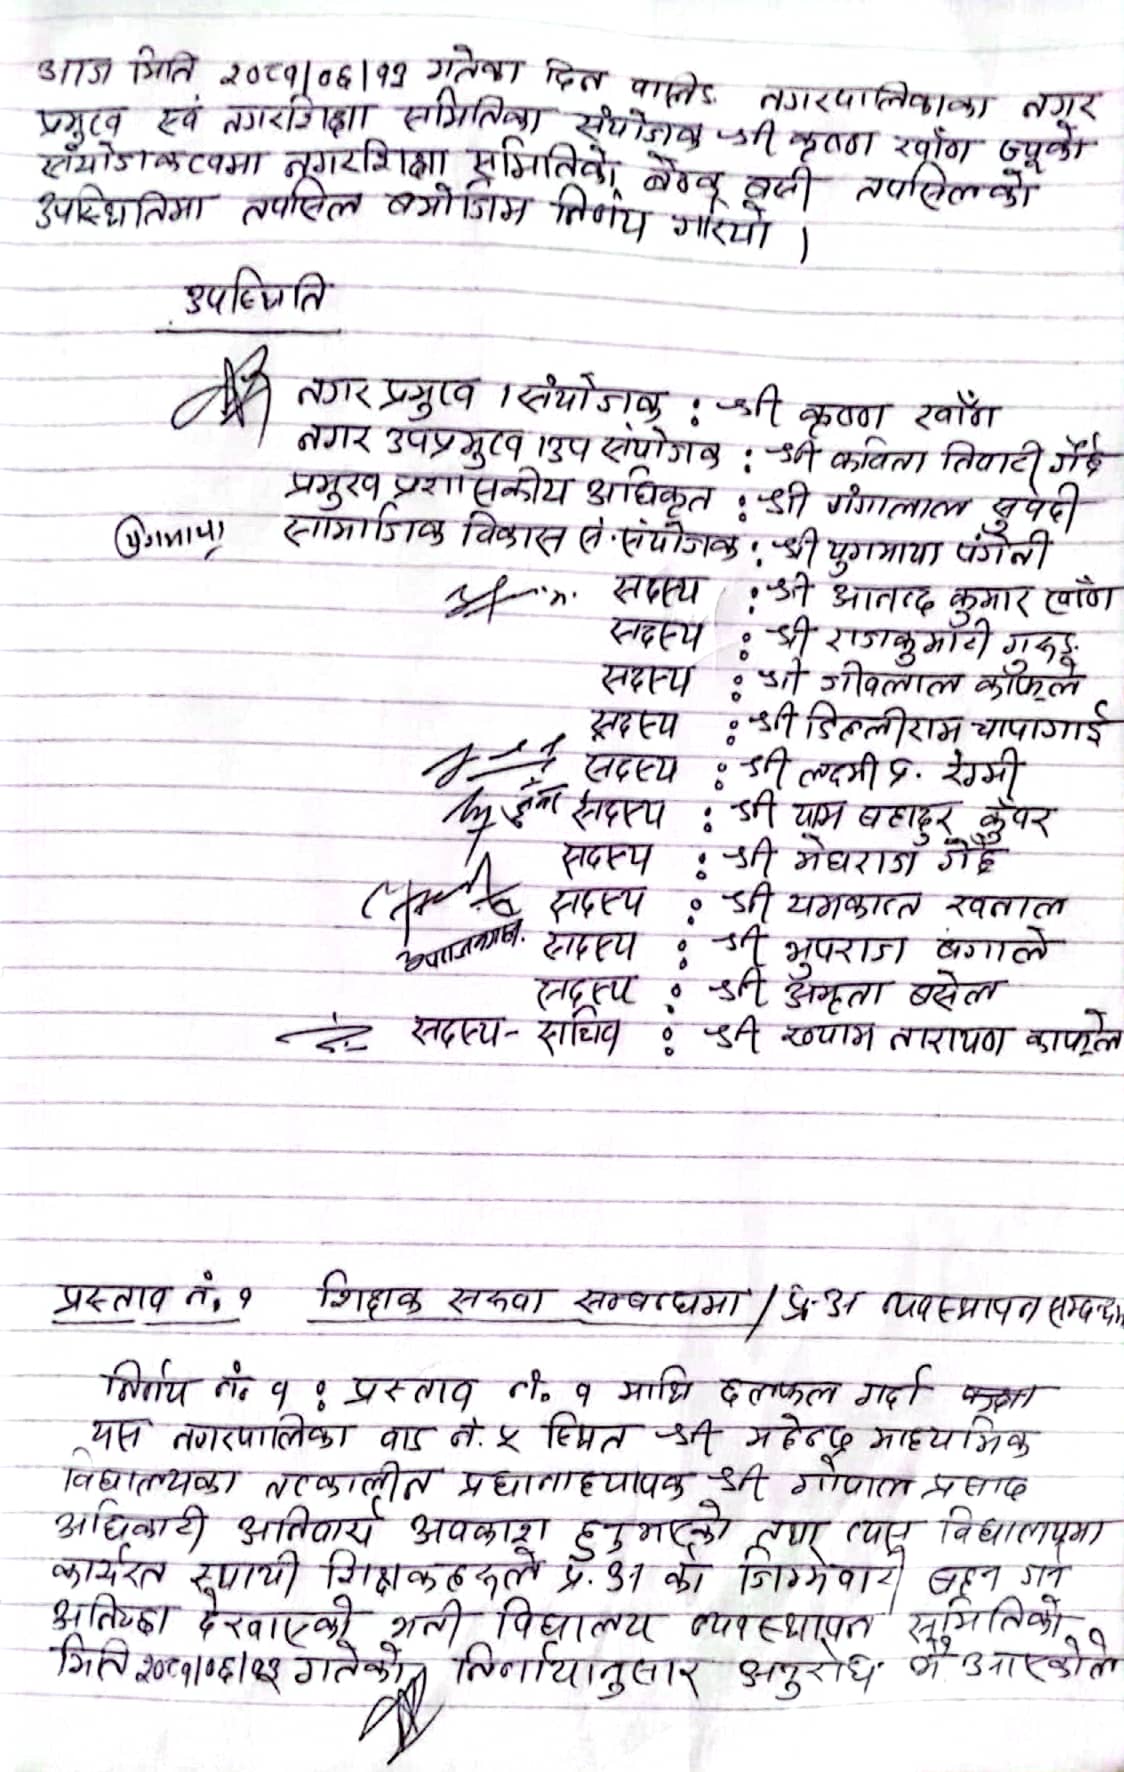 आज मिति २०८१/०६/१९ गतेका दिन वालिङ नगरपालिकाका नगर
प्रमुख एवं नगरशिक्षा समितिका संयोजक श्री कृष्ण खाँण ज्यूको
संयोजकत्वमा नगरशिक्षा समितिको बैठक बसी तपसिलको
उपस्थितिमा तपसिल बमोजिम निर्णय गरियो ।
उपस्थिति
नगर प्रमुख । संयोजक : श्री कृष्ण खाँण
नगर उपप्रमुख । उप संयोजक : श्री कविता तिवारी गैह्रे
प्रमुख प्रशासकीय अधिकृत : श्री गंगालाल सुवेदी
युगमाया सामाजिक विकास स. संयोजक : श्री युगमाया पंगेनी
सदस्य : श्री आनन्द कुमार खाँण
सदस्य : श्री राजकुमारी गुरुङ
सदस्य : श्री जीवलाल काफ्ले
सदस्य : श्री डिल्लीराम चापागाई
सदस्य : श्री लक्ष्मी प्र. रेग्मी
सदस्य : श्री याम बहादुर कुँवर
सदस्य : श्री मेघराज गैह्रे
सदस्य : श्री यमकान्त खनाल
सदस्य : श्री भुपराज बंगाले
सदस्य : श्री अमृता बसेल
सदस्य - सचिव : श्री श्याम नारायण काफ्ले
प्रस्ताव नं. १ शिक्षक सरुवा सम्बन्धमा / प्र.अ व्यवस्थापन सम्बन्धमा
निर्णय नं. १ : प्रस्ताव नं. १ माथि छलफल गर्दा
यस नगरपालिका वाड नं. ५ स्थित श्री महेन्द्र माध्यमिक
विद्यालयका तत्कालीन प्रधानाध्यापक श्री गोपाल प्रसाद
अधिकारी अनिवार्य अवकाश हुनुभएको तथा त्यस विद्यालयमा
कार्यरत स्थायी शिक्षकहरूले प्र. अ को जिम्मेवारी बहन गर्न
अनिच्छा देखाएको भनी विद्यालय व्यवस्थापन समितिको
मिति २०८१/०६/१३ गतेको निर्णयानुसार अनुरोध भै आएकोले